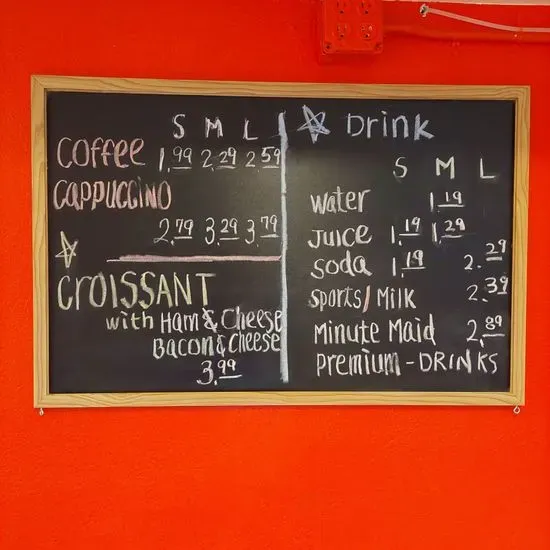 S M L
Coffee 1.99 2.29 2.59
Cappuccino
2.79 3.29 3.79
CROISSANT
with Ham & Cheese
Bacon & Cheese
3.99
Drink
S M L
water 1.19
Juice 1.19 1.29
Soda 1.19 2.29
Sports/Milk 2.39
Minute Maid 2.89
Premium-DRINKS